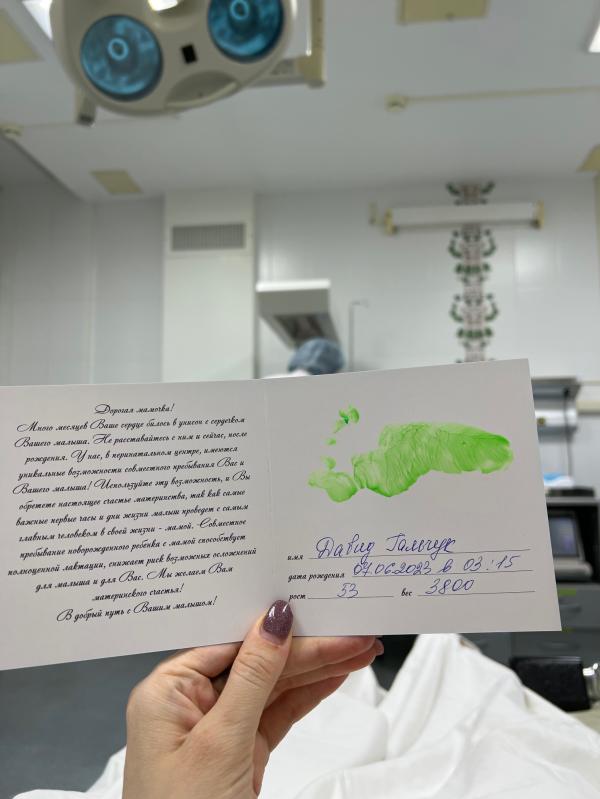 Дорогая мамочка!
Много месяцев Ваше сердце билось в унисон с сердечком
Вашего малыша. Не расставайтесь с ним и сейчас, после
рождения. У нас, в перинатальном центре, имеются
уникальные возможности совместного пребывания Вас и
Вашего малыша! Используйте эту возможность, и Вы
обретете настоящее счастье материнства, так как самые
важные первые часы и дни жизни малыш проведет с самым
главным человеком в своей жизни - мамой. Совместное
пребывание новорожденного ребенка с мамой способствует
полноценной лактации, снижает риск возможных осложнений
для малыша и для Вас. Мы желаем Вам
материнского счастья!
В добрый путь с Вашим малышом!
имя Давид
дата рождения 07.06.2023 в 03:15
рост 53 вес 3800